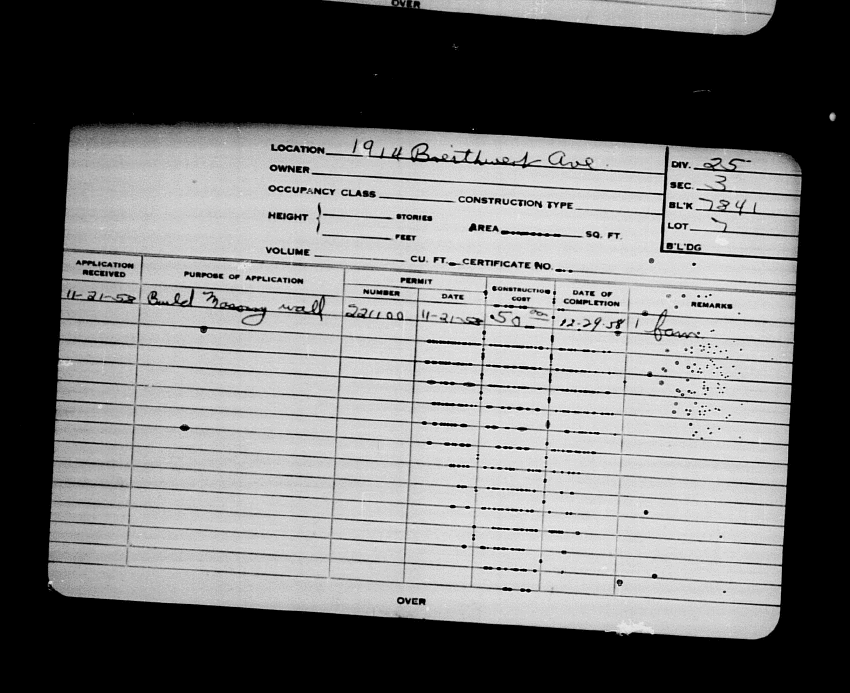 OVER
LOCATION 1914 Braithwest Ave.
DIV. 25
OWNER
SEC. 3
OCCUPANCY CLASS CONSTRUCTION TYPE
BL'K 7841
HEIGHT STORIES AREA SQ. FT.
LOT 7
FEET
B'L'DG
VOLUME CU. FT. CERTIFICATE NO.
APPLICATION RECEIVED PURPOSE OF APPLICATION PERMIT NUMBER DATE CONSTRUCTION COST DATE OF COMPLETION REMARKS
11-21-58 Build Masonry wall 221100 11-21-58 50 00 12-29-58 1 fam
OVER